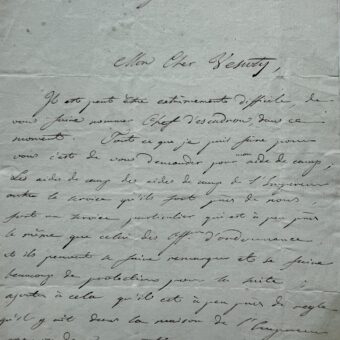 Mon Cher Venoty,
Il est peut être extrêmements difficile, de
vous faire nommer Chef d'escadron dans ce
moment. Tout ce que je puis faire pour
vous c'est de vous demander pour mon aide de camp,
Les aides de camp des aides de camp de l'Empereur
outre le service qu'ils font près de nous
font un service particulier qui est à peu près
le même que celui des Off.ers d'ordonnance
et ils peuvent se faire remarquer et se faire
beaucoup de protections pour la suite ;
ajoutez à cela qu'il est à peu près de règle
qu'il y ait dans la maison de l'Empereur